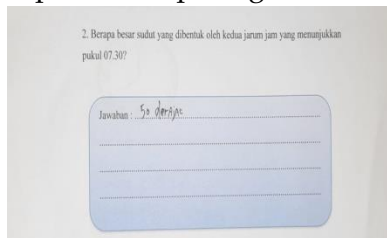 2. Berapa besar sudut yang dibentuk oleh kedua jarum jam yang menunjukkan
pukul 07.30?
Jawaban : 50 derajat